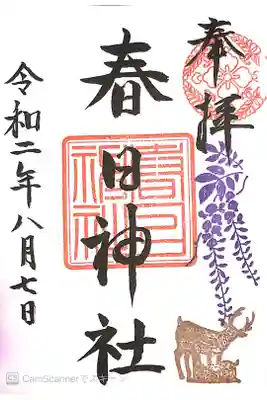 奉拝
春日神社
令和二年八月七日
春日神社
CamScannerでスキャン